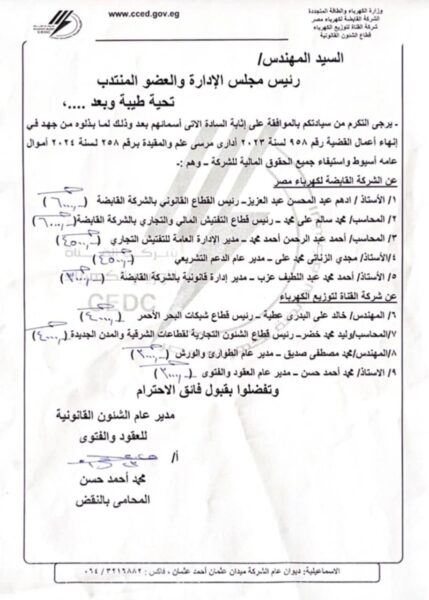 www.cced.gov.eg
وزارة الكهرباء والطاقة المتجددة
الشركة القابضة لكهرباء مصر
شركة القناة لتوزيع الكهرباء
قطاع الشئون القانونية
CEDC
السيد المهندس/
رئيس مجلس الإدارة والعضو المنتدب
تحية طيبة وبعد ....،
ـ يرجى التكرم من سيادتكم بالموافقة على إثابة السادة الاتى أسمائهم بعد وذلك لما بذلوه من جهد في
إنهاء أعمال القضية رقم ٩٥٨ لسنة ٢٠٢٣ أدارى مرسى علم والمقيدة برقم ٢٥٨ لسنة ٢٠٢٤ أموال
عامه أسيوط واستيفاء جميع الحقوق المالية للشركة – وهم :-
عن الشركة القابضة لكهرباء مصر
١/ الأستاذ/ ادهم عبد المحسن عبد العزيز– رئيس القطاع القانوني بالشركة القابضة (٦٠٠٠)
٢/ المحاسب/ محمد سالم على محمد – رئيس قطاع التفتيش المالي والتجاري بالشركة القابضة (٦٠٠٠)
٣/ المحاسب/ أحمد عبد الرحمن أحمد محمد – مدير الإدارة العامة للتفتيش التجاري (٤٥٠٠)
٤/الأستاذ/ مجدي الزناتى محمد على – مدير عام الدعم التشريعي (٤٥٠٠)
٥/ الأستاذ/ أحمد محمد عبد اللطيف عزب – مدير إدارة قانونية بالشركة القابضة (٣٠٠٠)
عن شركة القناة لتوزيع الكهرباء
٦/ المهندس/ خالد على البدرى عطية – رئيس قطاع شبكات البحر الأحمر (٤٠٠٠)
٧/المحاسب/وليد محمد خضر– رئيس قطاع الشئون التجارية لقطاعات الشرقية والمدن الجديدة (٤٠٠٠)
٨/المهندس/ محمد مصطفى صديق – مدير عام الطوارئ والورش (٣٠٠٠)
٩/ الاستاذ/ محمد أحمد حسن – مدير عام العقود والفتوى (٣٠٠٠)
وتفضلوا بقبول فائق الاحترام
مدير عام الشئون القانونية
للعقود والفتوى
أ/
محمد أحمد حسن
المحامى بالنقض
الاسماعيلية: ديوان عام الشركة ميدان عثمان أحمد عثمان ، فاكس : ٣٢١٦٨٨٢ / ٠٦٤